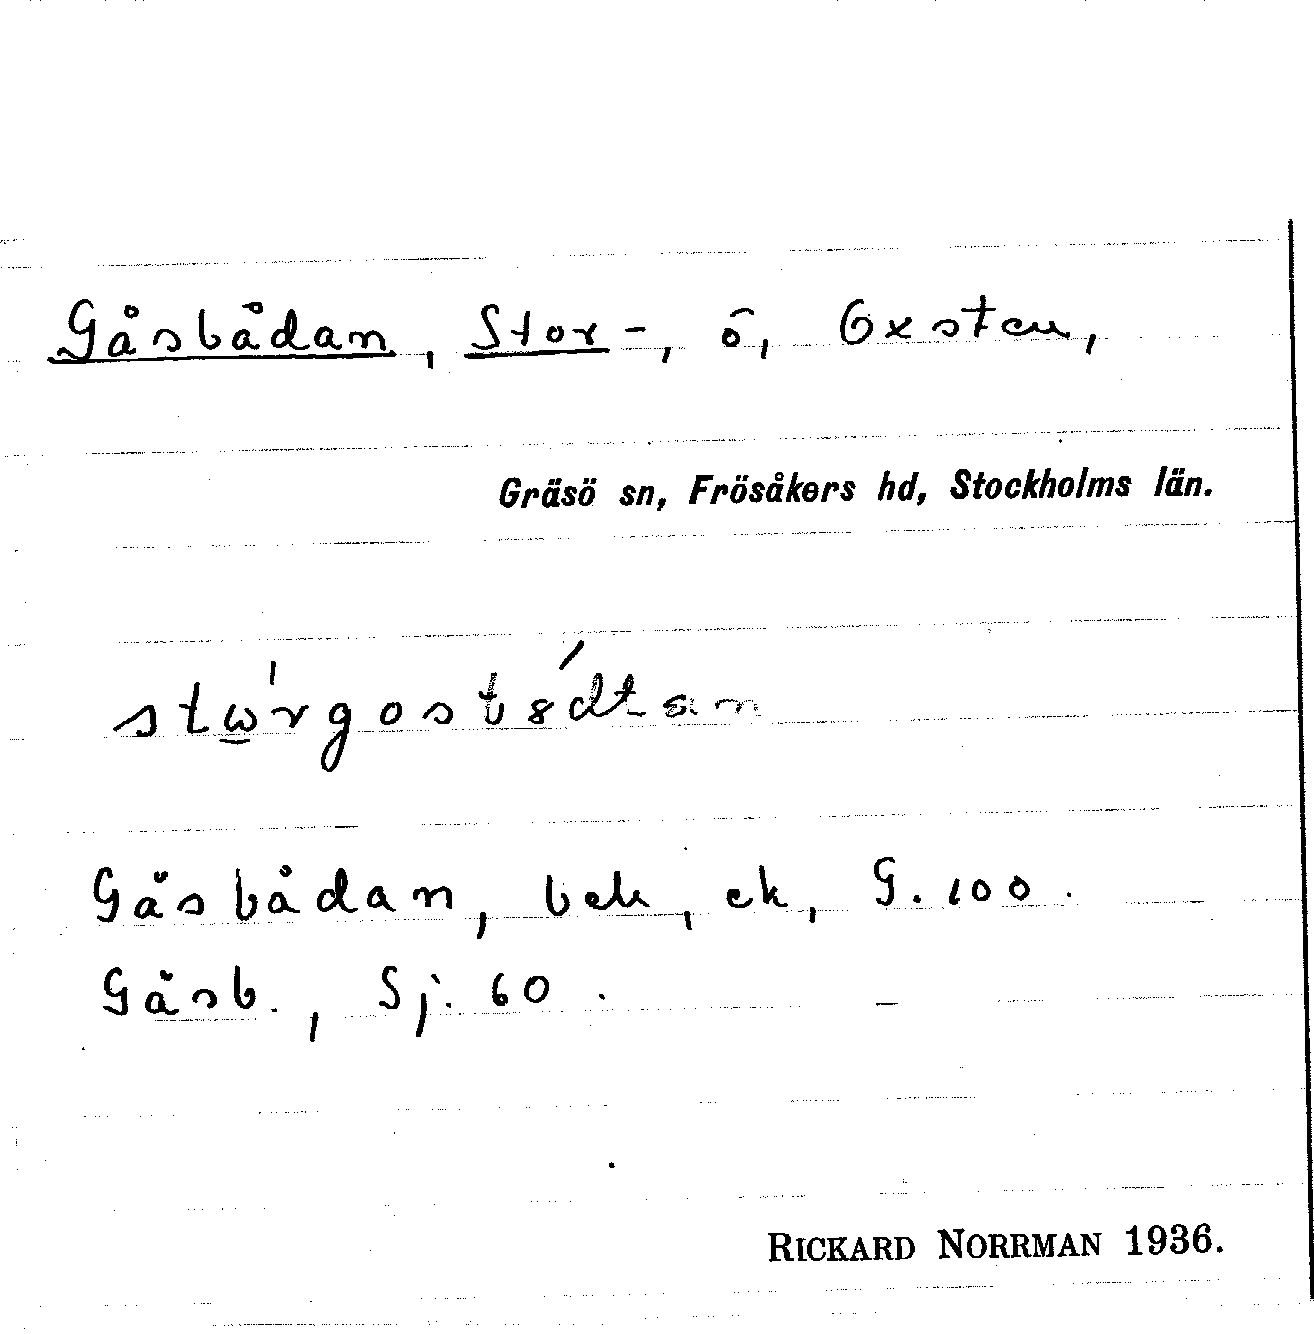 Gåsbådan, Stor-, ö, Öxsten,
Gräsö sn, Frösåkers hd, Stockholms län.
Gåsbådan, bek, ek, G. 100.
Gåsb., Sj. 60.
RICKARD NORRMAN 1936.